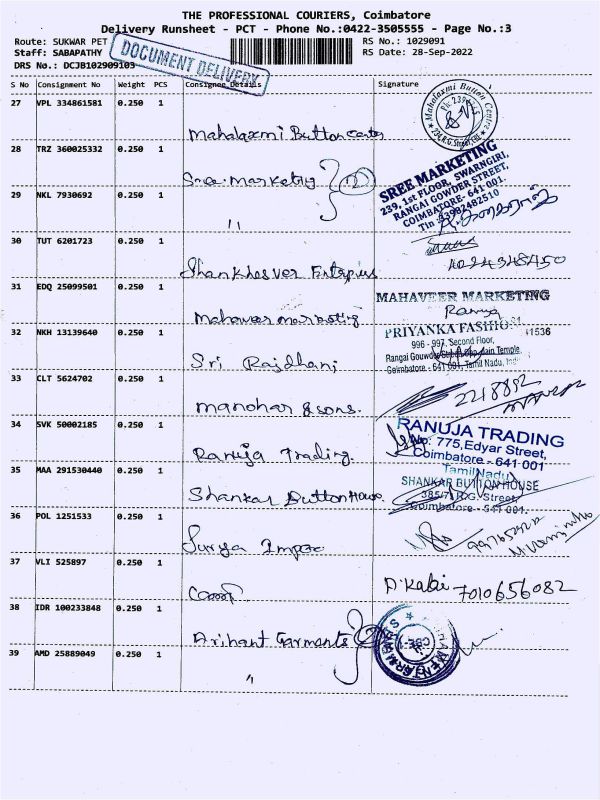 THE PROFESSIONAL COURIERS, Coimbatore
Delivery Runsheet - PCT - Phone No.:0422-3505555 - Page No.:3
Route: SUKWAR PET
RS No.: 1029091
Staff: SABAPATHY
RS Date: 28-Sep-2022
DRS No.: DCJB102909103
DOCUMENT DELIVERY
S No Consignment No Weight PCS Consignee Details Signature
27 VPL 334861581 0.250 1
Mahalaxmi Button Center
Mahalaxmi Button Centre
28 TRZ 360025332 0.250 1
Sree Marketing
SREE MARKETING
239, 1st FLOOR, SWARNGIRI,
RANGAI GOWDER STREET,
COIMBATORE- 641 001.
29 NKL 7930692 0.250 1
"
30 TUT 6201723 0.250 1
Shankheswer
31 EDQ 25099501 0.250 1
MAHAVEER MARKETING
Ranuja
32 NKH 13139640 0.250 1
Sri Rajdhani
PRIYANKA FASHION
996 - 997, Second Floor,
33 CLT 5624702 0.250 1
Manohar & Sons.
2218892
34 SVK 50002185 0.250 1
Ranuja Trading.
RANUJA TRADING
No: 775, Edyar Street,
Coimbatore - 641 001
Tamil Nadu
35 MAA 291530440 0.250 1
Shankar Button House
SHANKAR BUTTON HOUSE
385/7 R.G. Street,
Coimbatore - 641 001.
36 POL 1251533 0.250 1
Surya
37 VLI 525897 0.250 1
D. Kabi 7010656082
38 IDR 100233848 0.250 1
Arihant Garments
39 AMD 25889049 0.250 1
"